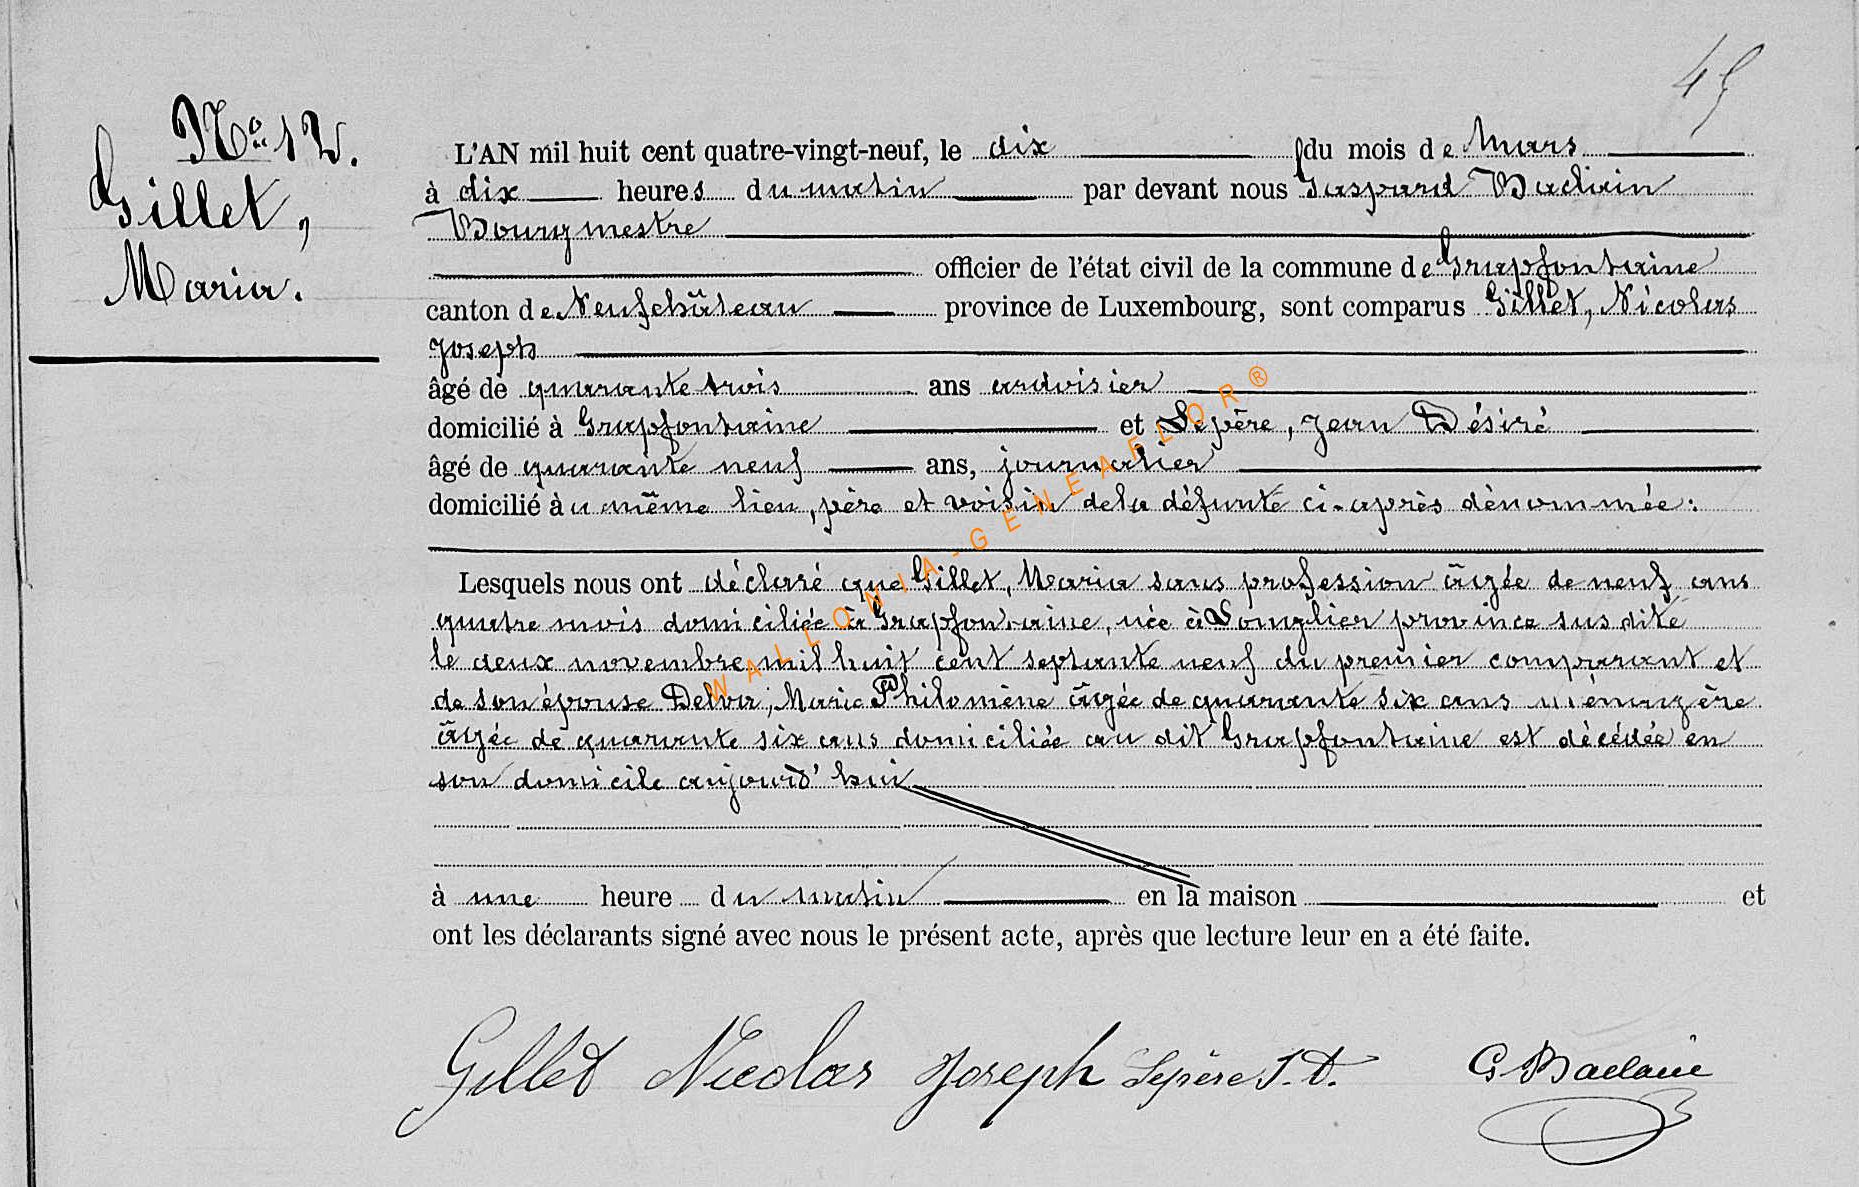 45
No 12.
Gillet,
Maria.
L'AN mil huit cent quatre-vingt-neuf, le dix du mois de Mars
à dix heures du matin par devant nous Gaspard Baclain
Bourgmestre
officier de l'état civil de la commune de Grapfontaine
canton de Neufchâteau province de Luxembourg, sont comparus Gillet, Nicolas
Joseph
âgé de quarante trois ans ardoisier
domicilié à Grapfontaine et Lepère, Jean Désiré
âgé de quarante neuf ans, journalier
domicilié au même lieu, père et voisin de la défunte ci-après dénommée:
Lesquels nous ont déclaré que Gillet, Maria sans profession âgée de neuf ans
quatre mois domiciliée à Grapfontaine, née à Longlier province susdite
le deux novembre mil huit cent septante neuf du premier comparant et
de son épouse Delva, Marie Philomène âgée de quarante six ans ménagère
âgée de quarante six ans domiciliée au dit Grapfontaine est décédée en
son domicile aujourd'hui
à une heure du matin en la maison et
ont les déclarants signé avec nous le présent acte, après que lecture leur en a été faite.
Gillet Nicolas Joseph Lepère J. D. G Baclain
WALLONIA-GENEAFLOR®